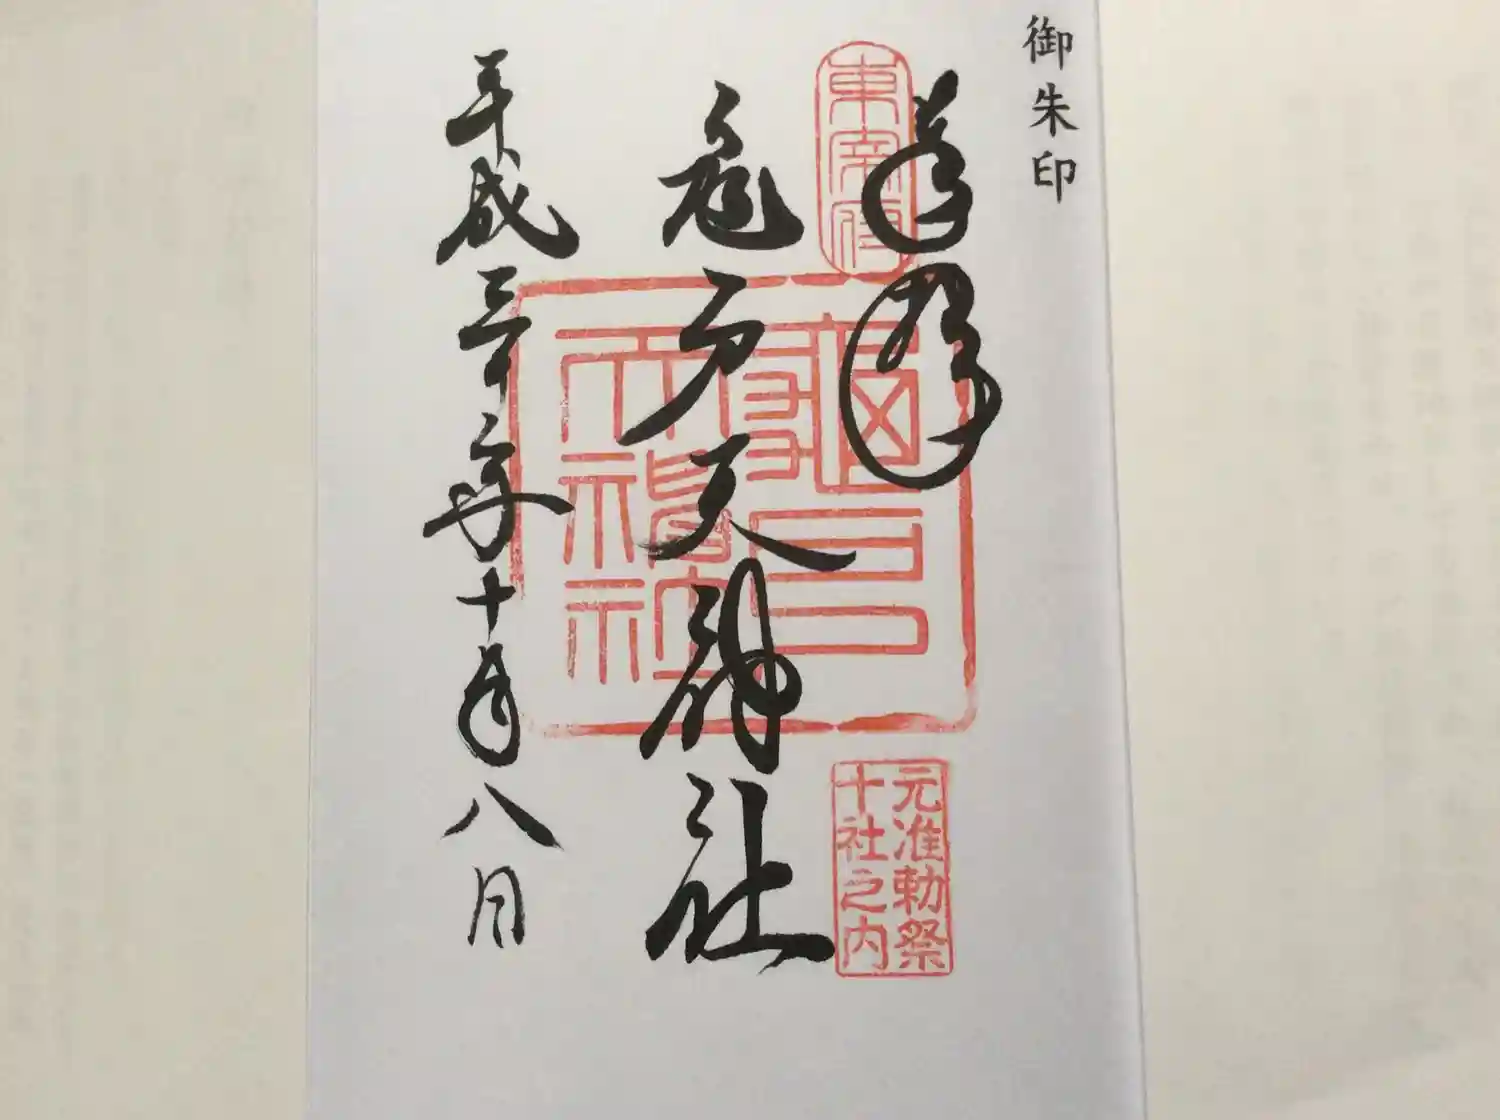 御朱印
奉拝
東宰府
亀戸天神社
龜戸
天神社
元准勅祭
十社之内
平成三十年十月八日